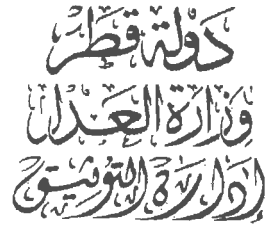 دَوْلَة قَطَر
وِزَارَة العَدل
إدَارَة التَّوثِيق